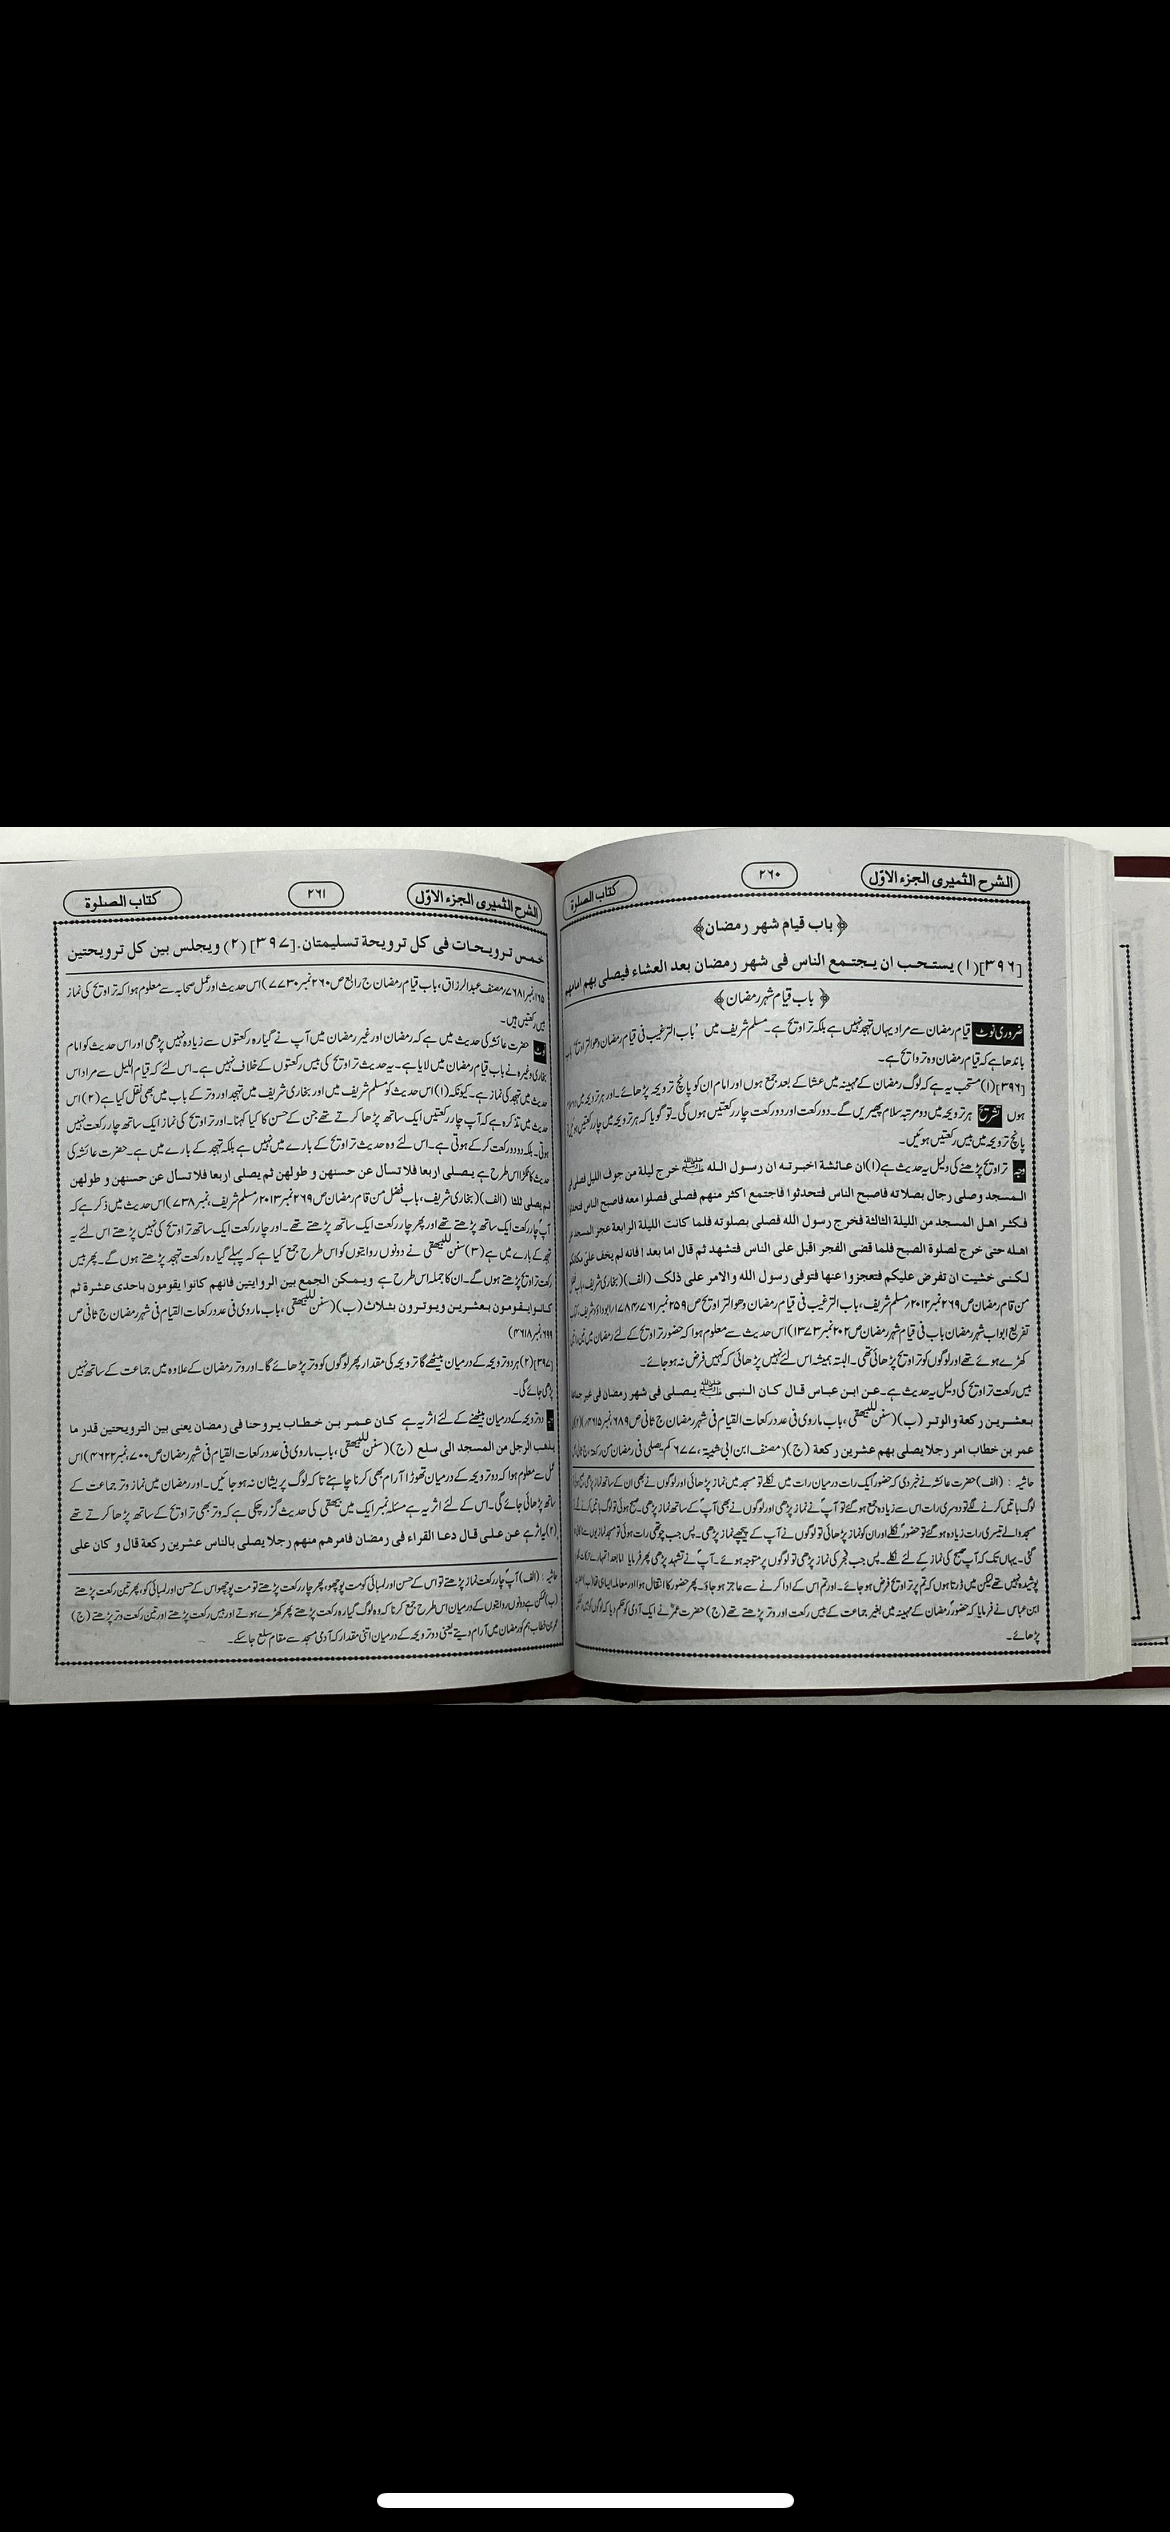 الشرح الثميرى الجزء الاوّل
۲۶۰
كتاب الصلوة
﴿ باب قيام شهر رمضان﴾
[۳۹۶](۱) يستحب ان يجتمع الناس فى شهر رمضان بعد العشاء فيصلى بهم امامهم
﴿ باب قیام شہر رمضان﴾
ضروری نوٹ قیام رمضان سے مراد یہاں تہجد نہیں ہے بلکہ تراویح ہے۔ مسلم شریف میں باب الترغیب فی قیام رمضان وھو التراویح
باندھا ہے کہ قیام رمضان وہ تراویح ہے۔
[۳۹۶](۱) مستحب یہ ہے کہ لوگ رمضان کے مہینہ میں عشا کے بعد جمع ہوں اور امام ان کو پانچ ترویحہ پڑھائے۔ اور ہر ترویحہ میں
ہوں تشریح ہر ترویحہ میں دو مرتبہ سلام پھیریں گے۔ دو رکعت اور دو رکعت چار رکعتیں ہوں گی۔ تو گویا کہ ہر ترویحہ میں چار رکعتیں ہوئیں
پانچ ترویحہ میں بیس رکعتیں ہوئیں۔
وجہ تراویح پڑھنے کی دلیل یہ حدیث ہے (۱) ان عائشة اخبرته ان رسول الله ﷺ خرج ليلة من جوف الليل فصلى فى
المسجد وصلى رجال بصلاته فاصبح الناس فتحدثوا فاجتمع اكثر منهم فصلى فصلوا معه فاصبح الناس فتحدثوا
فكثر اهل المسجد من الليلة الثالثة فخرج رسول الله فصلى بصلوته فلما كانت الليلة الرابعة عجز المسجد عن
اهله حتى خرج لصلوة الصبح فلما قضى الفجر اقبل على الناس فتشهد ثم قال اما بعد! فانه لم يخف على مكانكم
لكنى خشيت ان تفرض عليكم فتعجزوا عنها فتوفى رسول الله والامر على ذلك (الف) (بخاری شریف، باب فضل
من قام رمضان ص ۲۶۹ نمبر ۲۰۱۲ مسلم شریف، باب الترغیب فی قیام رمضان وھو التراویح ص ۲۵۹ نمبر ۷۶۱/۱۷۸۴ ابوداؤد شریف،
تفریع ابواب شہر رمضان باب فی قیام شہر رمضان ص ۲۰۲ نمبر ۱۳۷۳) اس حدیث سے معلوم ہوا کہ حضور تراویح کے لئے رمضان میں
کھڑے ہوئے تھے اور لوگوں کو تراویح پڑھائی تھی۔ البتہ ہمیشہ اس لئے نہیں پڑھائی کہ کہیں فرض نہ ہو جائے۔
بیس رکعت تراویح کی دلیل یہ حدیث ہے۔ عن ابن عباس قال كان النبى ﷺ يصلى فى شهر رمضان فى غير جماعة
بعشرين ركعة والوتر (ب) (سنن للبیھقی، باب ماروی فی عدد رکعات القیام فی شہر رمضان ج ثانی ص ۶۸۹ نمبر ۴۶۱۵) (۲)
عمر بن خطاب امر رجلا يصلى بهم عشرين ركعة (ج) (مصنف ابن ابی شیبۃ، ۶۷۷ کم یصلی فی رمضان من رکعۃ،
حاشیہ : (الف) حضرت عائشہ نے خبر دی کہ حضور ایک رات درمیان رات میں نکلے تو مسجد میں نماز پڑھائی اور لوگوں نے بھی ان کے ساتھ نماز پڑھی
لوگ باتیں کرنے لگے تو دوسری رات اس سے زیادہ جمع ہو گئے تو آپ نے نماز پڑھی اور لوگوں نے بھی آپ کے ساتھ نماز پڑھی۔ صبح ہوئی تو لوگ باتیں کرنے لگے
مسجد والے تیسری رات زیادہ ہو گئے تو حضور نکلے اور ان کو نماز پڑھائی تو لوگوں نے آپ کے پیچھے نماز پڑھی۔ پس جب چوتھی رات ہوئی تو مسجد نمازیوں سے
گئی۔ یہاں تک کہ آپ صبح کی نماز کے لئے نکلے۔ پس جب فجر کی نماز پڑھی تو لوگوں پر متوجہ ہوئے۔ آپ نے تشہد پڑھی پھر فرمایا اما بعد!
پوشیدہ نہیں تھے لیکن میں ڈرتا ہوں کہ تم پر تراویح فرض ہو جائے۔ اور تم اس کے ادا کرنے سے عاجز ہو جاؤ۔ پھر حضور کا انتقال ہوا اور معاملہ ایسا ہی تھا (ب)
ابن عباس نے فرمایا کہ حضور رمضان کے مہینہ میں بغیر جماعت کے بیس رکعت اور وتر پڑھتے تھے (ج) حضرت عمر نے ایک آدمی کو حکم دیا کہ لوگوں کو بیس رکعت
پڑھائے۔
الشرح الثميرى الجزء الاوّل
۲۶۱
كتاب الصلوة
خمس ترويحات فى كل ترويحة تسليمتان. [۳۹۷] (۲) ويجلس بين كل ترويحتين
۱۶۵، نمبر ۷۶۸۱ مصنف عبدالرزاق، باب قیام رمضان ج رابع ص ۲۶۰ نمبر ۷۷۳۰) اس حدیث اور عمل صحابہ سے معلوم ہوا کہ تراویح کی نماز
بیس رکعتیں ہیں۔
نوٹ حضرت عائشہ کی حدیث میں ہے کہ رمضان اور غیر رمضان میں آپ نے گیارہ رکعتوں سے زیادہ نہیں پڑھی اور اس حدیث کو امام
بخاری وغیرہ نے باب قیام رمضان میں لایا ہے۔ یہ حدیث تراویح کی بیس رکعتوں کے خلاف نہیں ہے۔ اس لئے کہ قیام اللیل سے مراد اس
حدیث میں تہجد کی نماز ہے۔ کیونکہ (۱) اس حدیث کو مسلم شریف میں اور بخاری شریف میں تہجد اور وتر کے باب میں بھی نقل کیا ہے (۲) اس
حدیث میں تذکرہ ہے کہ آپ چار رکعتیں ایک ساتھ پڑھا کرتے تھے جن کے حسن کا کیا کہنا۔ اور تراویح کی نماز ایک ساتھ چار رکعت نہیں
ہوتی۔ بلکہ دو دو رکعت کر کے ہوتی ہے۔ اس لئے وہ حدیث تراویح کے بارے میں نہیں ہے بلکہ تہجد کے بارے میں ہے۔ حضرت عائشہ کی
حدیث کا ٹکڑا اس طرح ہے يصلى اربعا فلا تسال عن حسنهن و طولهن ثم يصلى اربعا فلا تسال عن حسنهن و طولهن
ثم يصلى ثلثا (الف) (بخاری شریف، باب فضل من قام رمضان ص ۲۶۹ نمبر ۲۰۱۳ مسلم شریف، نمبر ۷۳۸) اس حدیث میں ذکر ہے کہ
آپ چار رکعت ایک ساتھ پڑھتے تھے اور پھر چار رکعت ایک ساتھ پڑھتے تھے۔ اور چار رکعت ایک ساتھ تراویح کی نہیں پڑھتے اس لئے یہ
تہجد کے بارے میں ہے (۳) سنن للبیھقی نے دونوں روایتوں کو اس طرح جمع کیا ہے کہ پہلے گیارہ رکعت تہجد پڑھتے ہوں گے۔ پھر بیس
رکعت تراویح پڑھتے ہوں گے۔ ان کا جملہ اس طرح ہے ويمكن الجمع بين الروايتين فانهم كانوا يقومون باحدى عشرة ثم
كانوا يقومون بعشرين ويوترون بثلاث (ب) (سنن للبیھقی، باب ماروی فی عدد رکعات القیام فی شہر رمضان ج ثانی ص
۶۹۹، نمبر ۴۶۱۸)
[۳۹۷] (۲) ہر دو ترویحہ کے درمیان بیٹھے گا ترویحہ کی مقدار پھر لوگوں کو وتر پڑھائے گا۔ اور وتر رمضان کے علاوہ میں جماعت کے ساتھ نہیں
پڑھی جائے گی۔
وجہ دو ترویحہ کے درمیان بیٹھنے کے لئے اثر یہ ہے كان عمر بن خطاب يروحنا فى رمضان يعنى بين الترويحتين قدر ما
يذهب الرجل من المسجد الى سلع (ج) (سنن للبیھقی، باب ماروی فی عدد رکعات القیام فی شہر رمضان ص ۷۰۰، نمبر ۴۶۲۲) اس
عمل سے معلوم ہوا کہ دو ترویحہ کے درمیان تھوڑا آرام بھی کرنا چاہئے تاکہ لوگ پریشان نہ ہو جائیں۔ اور رمضان میں نماز وتر جماعت کے
ساتھ پڑھائی جائے گی۔ اس کے لئے اثر یہ ہے مسئلہ نمبر ایک میں بیھقی کی حدیث گزر چکی ہے کہ وتر بھی تراویح کے ساتھ پڑھا کرتے تھے
(۲) یہ اثر ہے عن على قال دعا القراء فى رمضان فامرهم منهم رجلا يصلى بالناس عشرين ركعة قال و كان على
حاشیہ : (الف) آپ چار رکعت نماز پڑھتے تو اس کے حسن اور لمبائی کو مت پوچھو، پھر چار رکعت پڑھتے تو مت پوچھو اس کے حسن اور لمبائی کو، پھر تین رکعت پڑھتے
(ب) ممکن ہے دونوں روایتوں کے درمیان اس طرح جمع کرنا کہ وہ لوگ گیارہ رکعت پڑھتے پھر کھڑے ہوتے اور بیس رکعت پڑھتے اور تین رکعت وتر پڑھتے (ج)
عمر بن خطاب ہم کو رمضان میں آرام دیتے یعنی دو ترویحہ کے درمیان اتنی مقدار کہ آدمی مسجد سے مقام سلع جا سکے۔